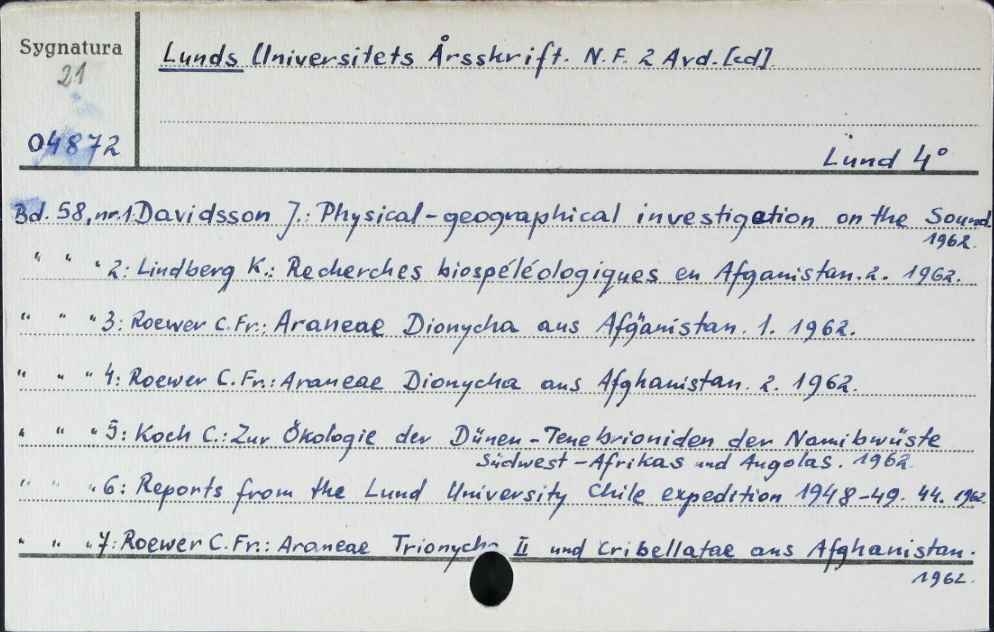 Sygnatura
21
04872
Lunds Universitets Årsskrift. N.F. 2 Avd. [cd]
Lund 4°
Bd. 58, nr.1 Davidsson J.: Physical-geographical investigation on the Sound. 1962.
" " " 2: Lindberg K.: Recherches biospéléologiques en Afganistan. 2. 1962.
" " " 3: Roewer C.Fr.: Araneae Dionycha aus Afganistan. 1. 1962.
" " " 4: Roewer C.Fr.: Araneae Dionycha aus Afghanistan. 2. 1962.
" " " 5: Koch C.: Zur Ökologie der Dünen-Tenebrioniden der Namibwüste
Südwest-Afrikas und Angolas. 1962
" " " 6: Reports from the Lund University Chile expedition 1948-49. 44. 1962.
" " " 7: Roewer C.Fr.: Araneae Trionycha II und Cribellatae aus Afghanistan.
1962.